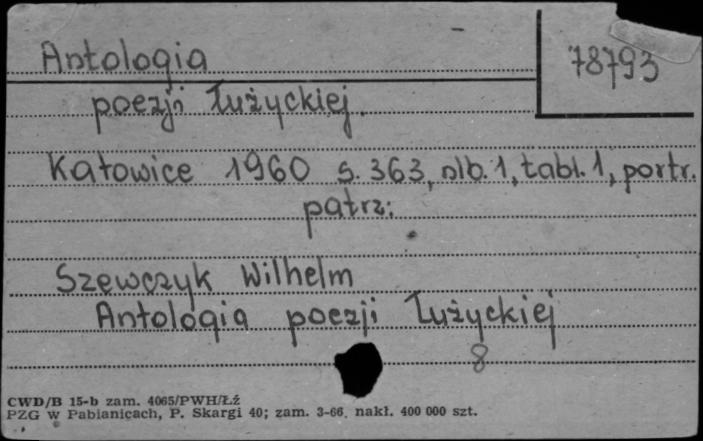 Antologia
78793
poezji Łużyckiej.
Katowice 1960 s. 363, nlb. 1, tabl. 1, portr.
patrz:
Szewczyk Wilhelm
Antologia poezji Łużyckiej
8
CWD/B 15-b zam. 4065/PWH/Łź
PZG w Pabianicach, P. Skargi 40; zam. 3-66. nakł. 400 000 szt.